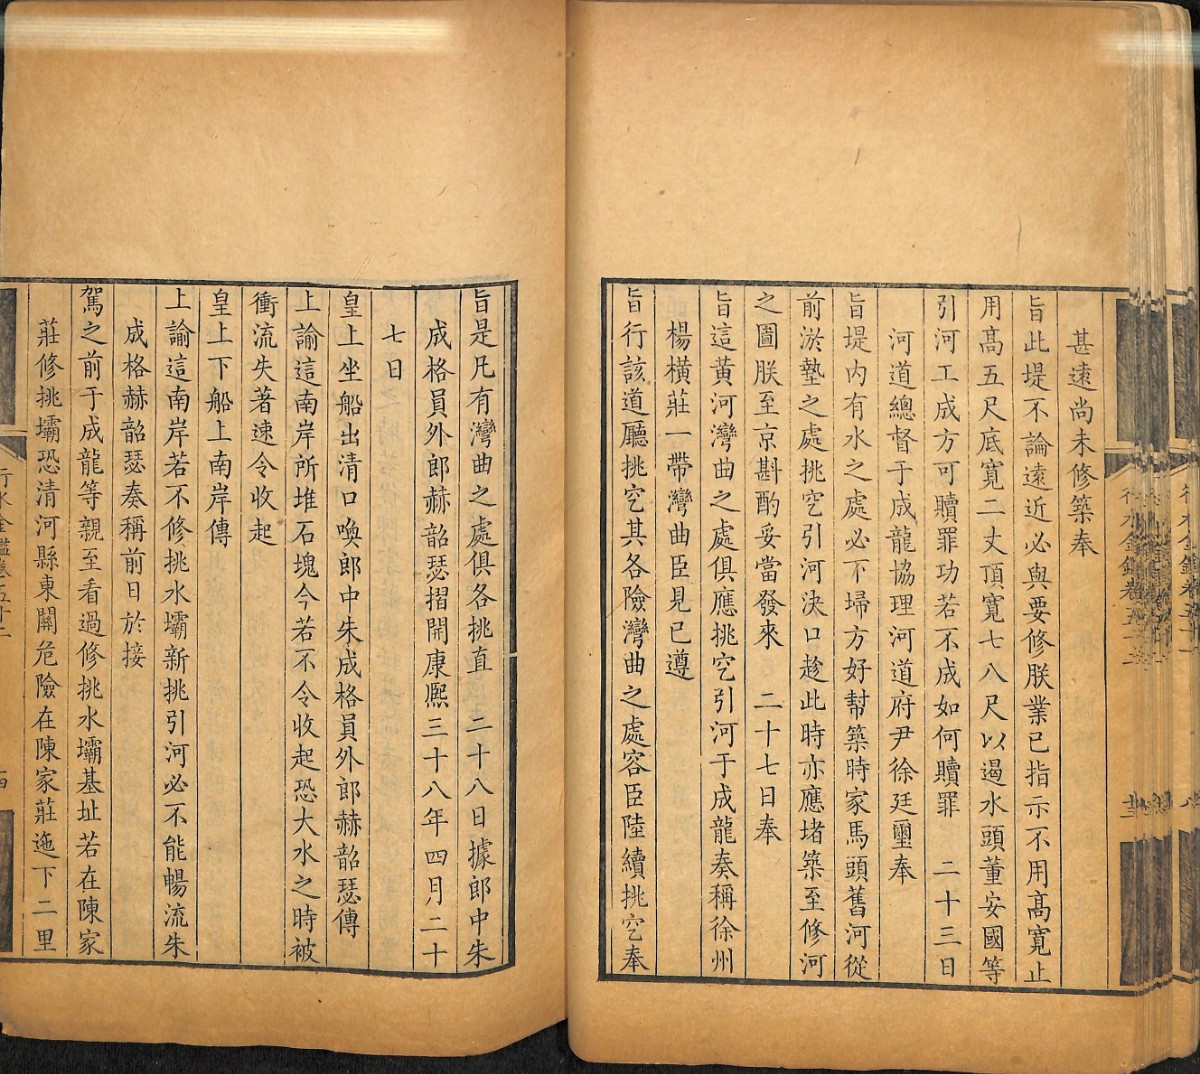 甚遠尚未修築奉
旨此堤不論遠近必與要修朕業已指示不用高寬止
用高五尺底寬二丈頂寬七八尺以遏水頭董安國等
引河工成方可贖罪功若不成如何贖罪　二十三日
河道總督于成龍協理河道府尹徐廷璽奉
旨堤內有水之處必下埽方好幫築時家馬頭舊河從
前淤墊之處挑空引河決口趁此時亦應堵築至修河
之圖朕至京斟酌妥當發來　二十七日奉
旨這黃河灣曲之處俱應挑空引河于成龍奏稱徐州
楊橫莊一帶灣曲臣見已遵
旨行該道廳挑空其各險灣曲之處容臣陸續挑空奉
旨是凡有灣曲之處俱各挑直　二十八日據郎中朱
成格員外郎赫韶瑟摺開康熙三十八年四月二十
七日
皇上坐船出清口喚郎中朱成格員外郎赫韶瑟傳
上諭這南岸所堆石塊今若不令收起恐大水之時被
衝流失著速令收起
皇上下船上南岸傳
上諭這南岸若不修挑水壩新挑引河必不能暢流朱
成格赫韶瑟奏稱前日於接
駕之前于成龍等親至看過修挑水壩基址若在陳家
莊修挑壩恐清河縣東關危險在陳家莊迤下二里
行水金鑑卷五十二